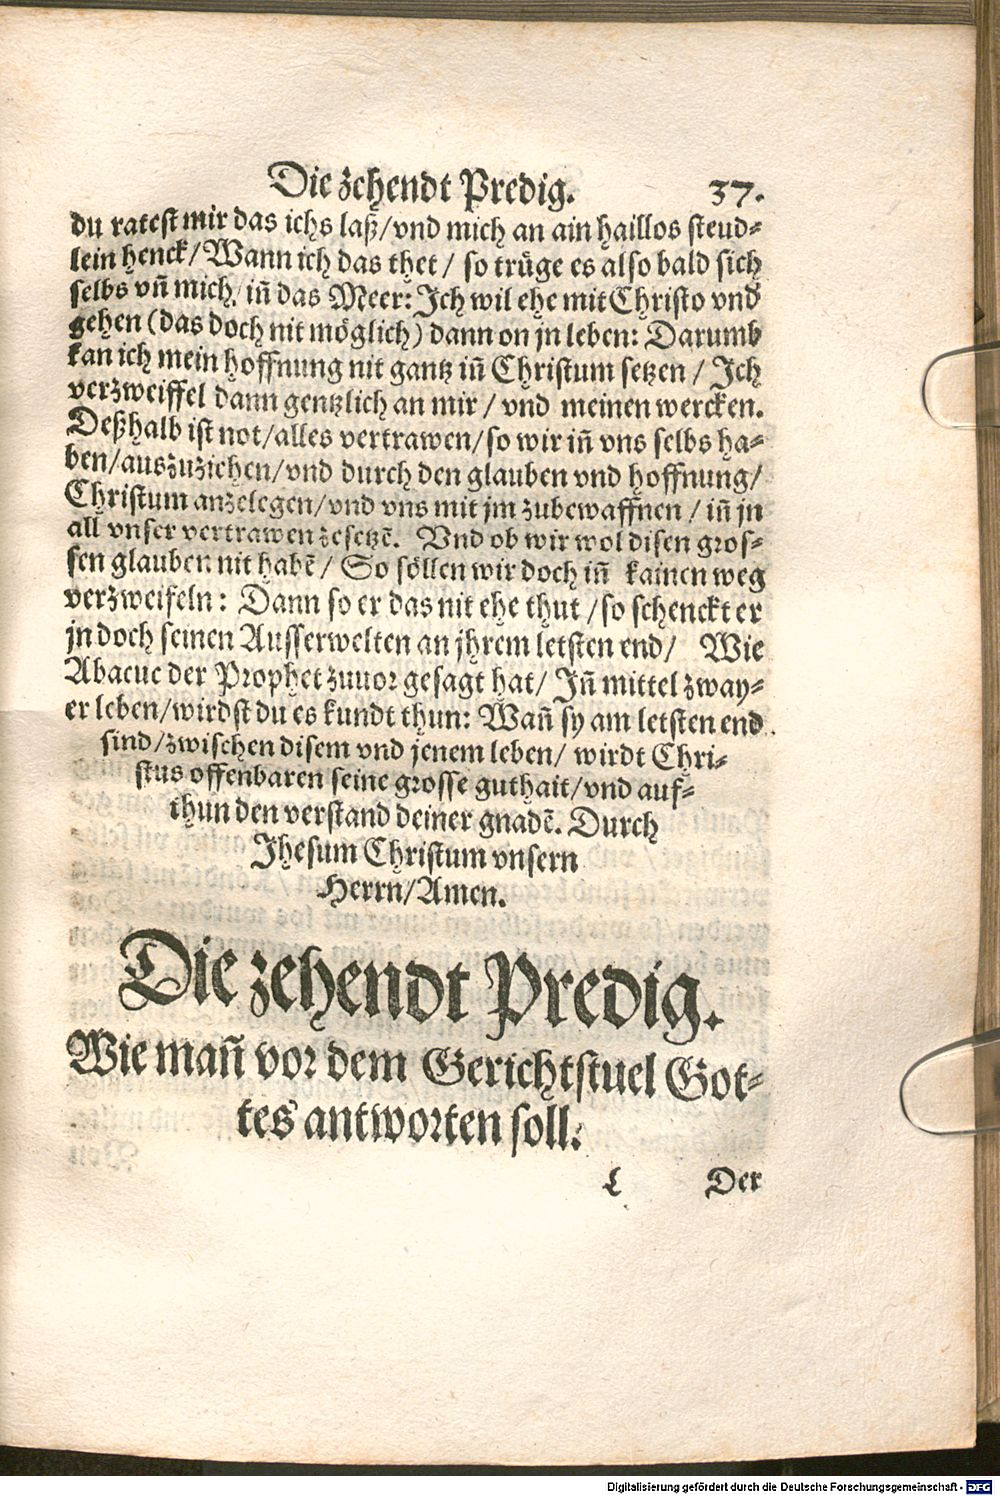 Die zehendt Predig. 37.
du ratest mir das ichs laß/vnd mich an ain haillos steud⸗
lein henck/Wann ich das thet/ so trüge es also bald sich
selbs vñ mich/ iñ das Meer: Ich wil ehe mit Christo vnd
gehen (das doch nit möglich) dann on jn leben: Darumb
kan ich mein hoffnung nit gantz iñ Christum setzen/ Ich
verzweiffel dann gentzlich an mir/ vnd meinen wercken.
Deßhalb ist not/alles vertrawen/so wir iñ vns selbs ha⸗
ben/auszuziehen/vnd durch den glauben vnd hoffnung/
Christum anzelegen/vnd vns mit jm zubewaffnen/ iñ jn
all vnser vertrawen zesetzē. Vnd ob wir wol disen gros⸗
sen glauben nit habē/ So söllen wir doch iñ kainen weg
verzweifeln: Dann so er das nit ehe thut/so schenckt er
jn doch seinen Ausserwelten an jhrem letsten end/ Wie
Abacuc der Prophet zuuor gesagt hat/ Iñ mittel zway⸗
er leben/wirdst du es kundt thun: Wañ sy am letsten end
sind/zwischen disem vnd jenem leben/ wirdt Chri⸗
stus offenbaren seine grosse guthait/vnd auf⸗
thun den verstand deiner gnadē. Durch
Jhesum Christum vnsern
Herrn/Amen.
Die zehendt Predig.
Wie mañ vor dem Gerichtstuel Got⸗
tes antworten soll.
Der
Digitalisierung gefördert durch die Deutsche Forschungsgemeinschaft - DFG